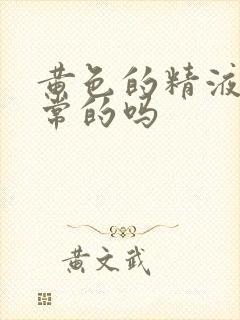 黄色的精液
常的吗
黄文武